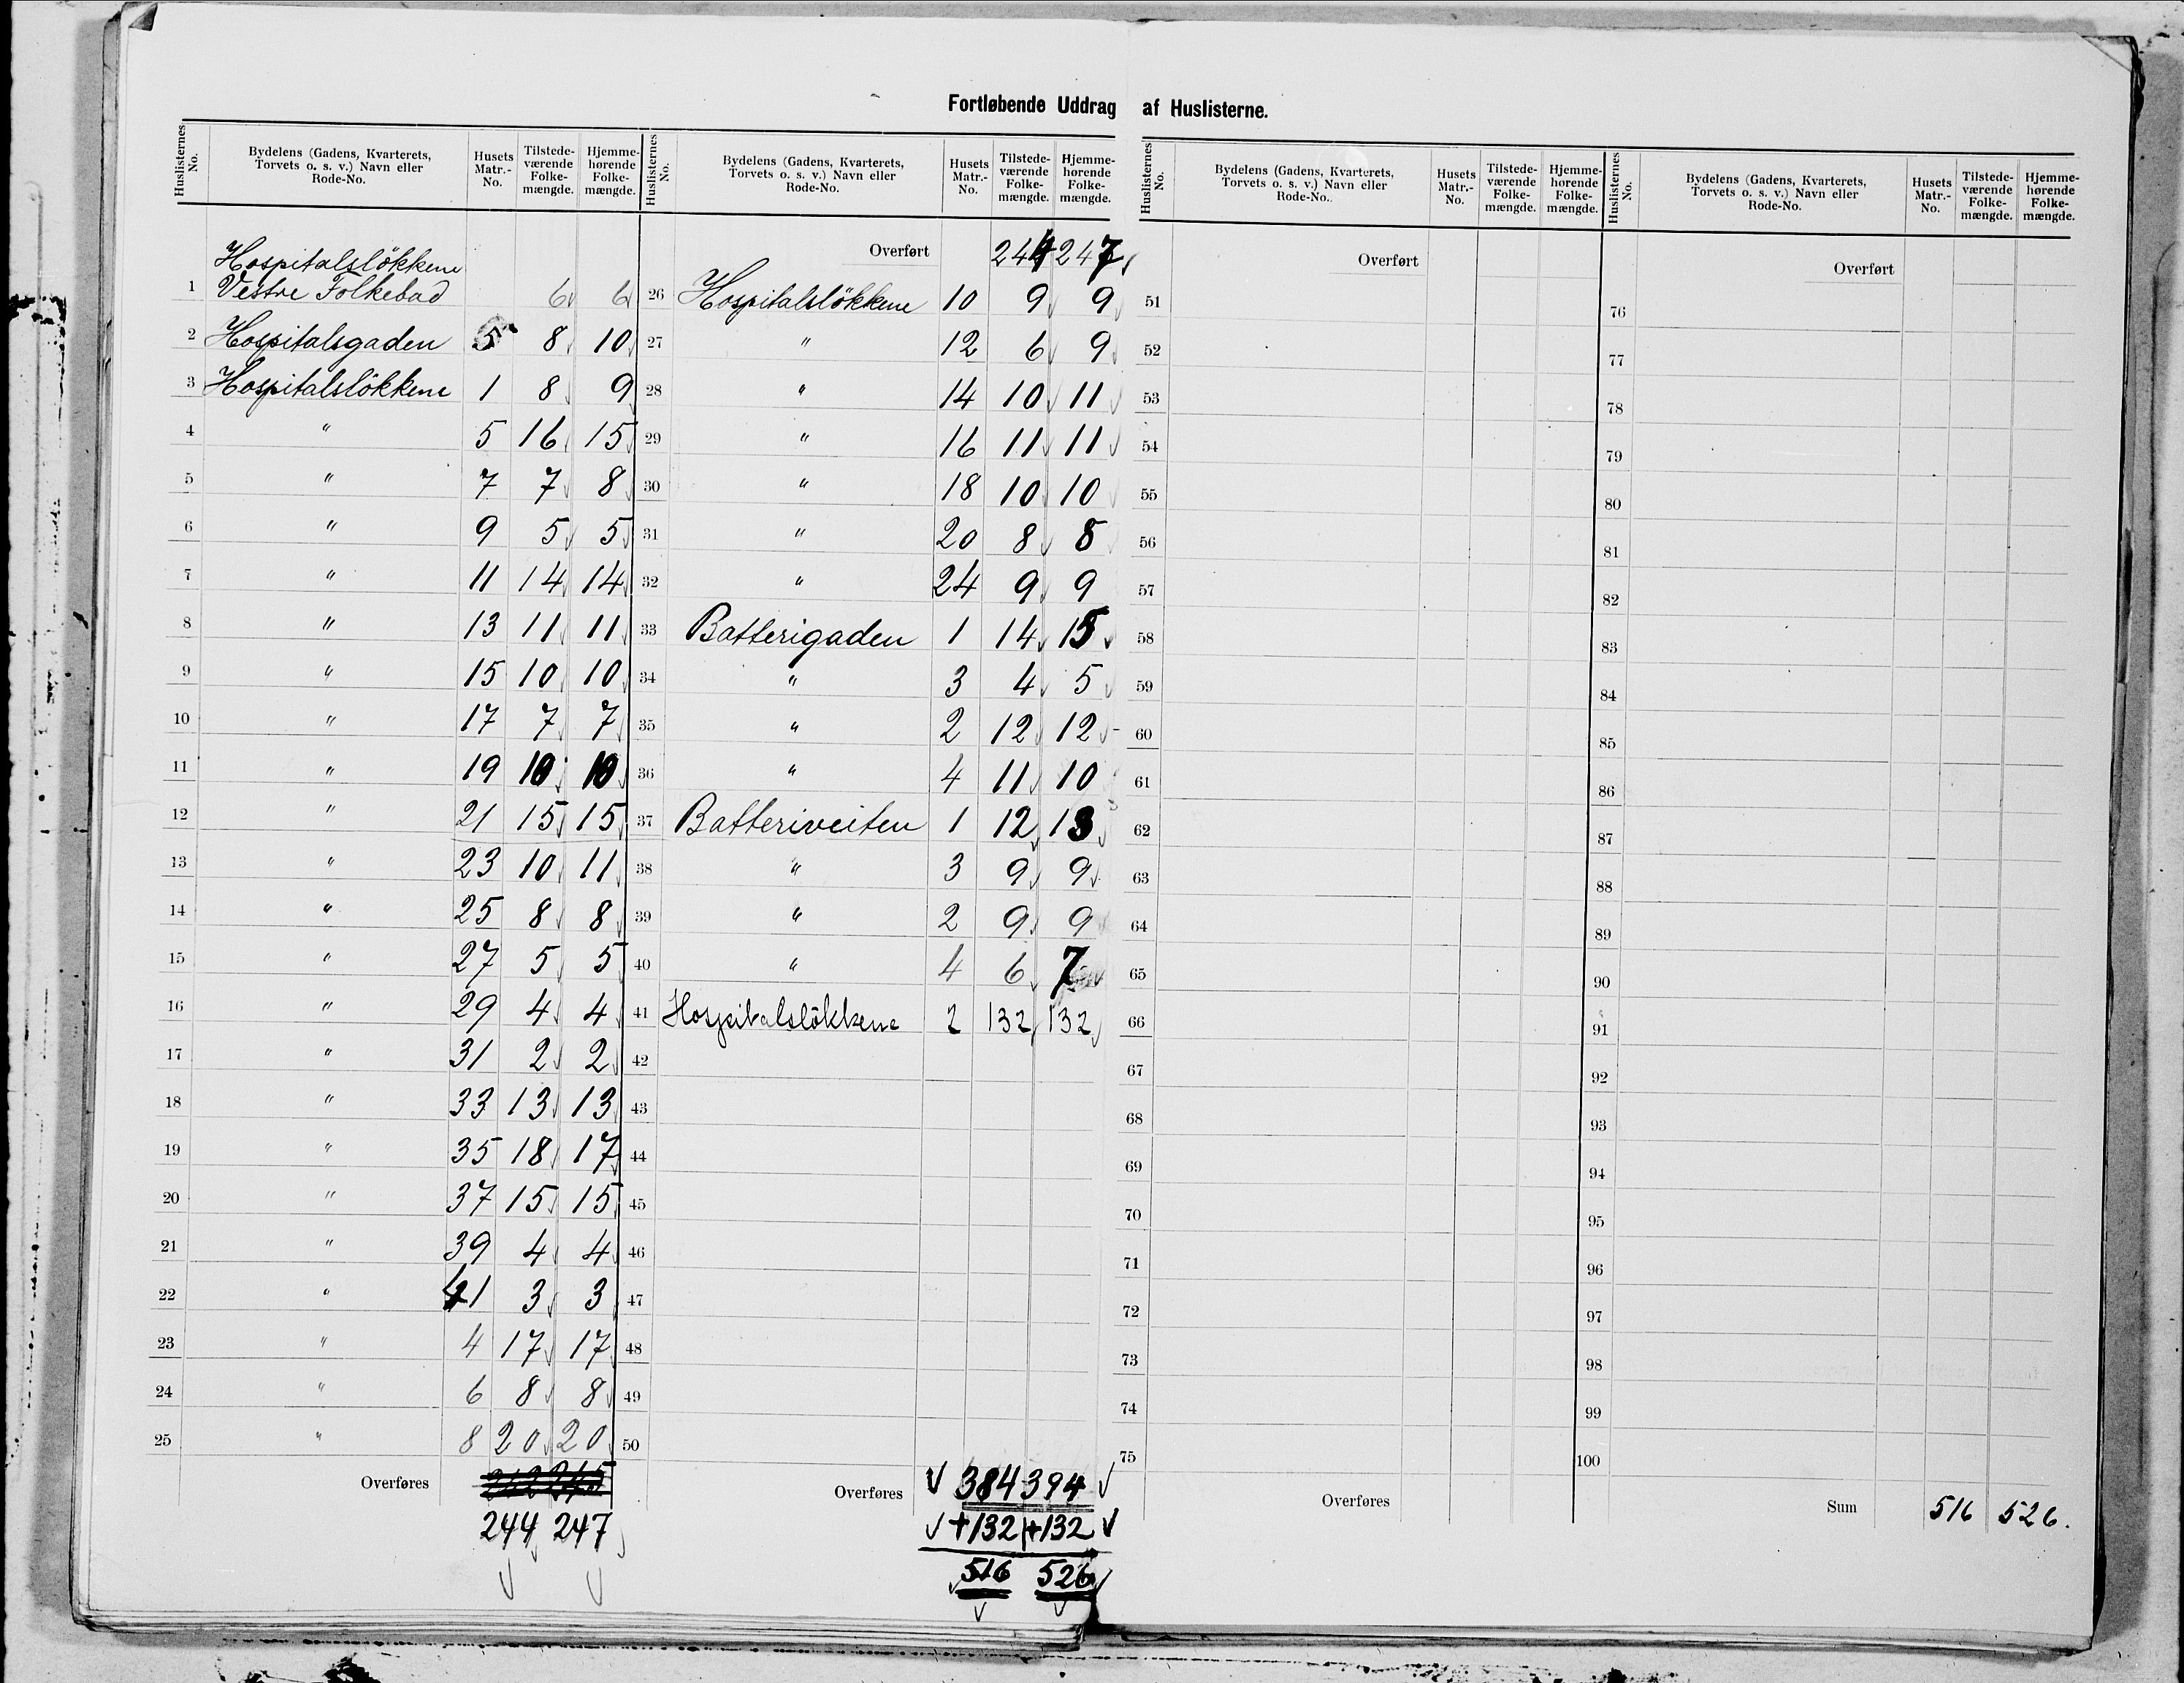 Fortløbende Uddrag af Huslisterne.
Huslisternes No. Bydelens (Gadens, Kvarterets, Torvets o. s. v.) Navn eller Rode-No. Husets Matr.-No. Tilstede-værende Folke-mængde. Hjemme-hørende Folke-mængde.
Hospitalsløkkene
1 Vestre Folkebad 6 6
2 Hospitalsgaden 5 8 10
3 Hospitalsløkkene 1 8 9
4 " 5 16 15
5 " 7 7 8
6 " 9 5 5
7 " 11 14 14
8 " 13 11 11
9 " 15 10 10
10 " 17 7 7
11 " 19 10 10
12 " 21 15 15
13 " 23 10 11
14 " 25 8 8
15 " 27 5 5
16 " 29 4 4
17 " 31 2 2
18 " 33 13 13
19 " 35 18 17
20 " 37 15 15
21 " 39 4 4
22 " 41 3 3
23 " 4 17 17
24 " 6 8 8
25 " 8 20 20
Overføres
244 247
Huslisternes No. Bydelens (Gadens, Kvarterets, Torvets o. s. v.) Navn eller Rode-No. Husets Matr.-No. Tilstede-værende Folke-mængde. Hjemme-hørende Folke-mængde.
Overført 244 247
26 Hospitalsløkkene 10 9 9
27 " 12 6 9
28 " 14 10 11
29 " 16 11 11
30 " 18 10 10
31 " 20 8 8
32 " 24 9 9
33 Batterigaden 1 14 15
34 " 3 4 5
35 " 2 12 12
36 " 4 11 10
37 Batteriveiten 1 12 13
38 " 3 9 9
39 " 2 9 9
40 " 4 6 7
41 Hospitalsløkkene 2 132 132
42
43
44
45
46
47
48
49
50
Overføres 384 394
+132 +132
516 526
Huslisternes No. Bydelens (Gadens, Kvarterets, Torvets o. s. v.) Navn eller Rode-No. Husets Matr.-No. Tilstede-værende Folke-mængde. Hjemme-hørende Folke-mængde.
Overført
51
52
53
54
55
56
57
58
59
60
61
62
63
64
65
66
67
68
69
70
71
72
73
74
75
Overføres
Huslisternes No. Bydelens (Gadens, Kvarterets, Torvets o. s. v.) Navn eller Rode-No. Husets Matr.-No. Tilstede-værende Folke-mængde. Hjemme-hørende Folke-mængde.
Overført
76
77
78
79
80
81
82
83
84
85
86
87
88
89
90
91
92
93
94
95
96
97
98
99
100
Sum 516 526.